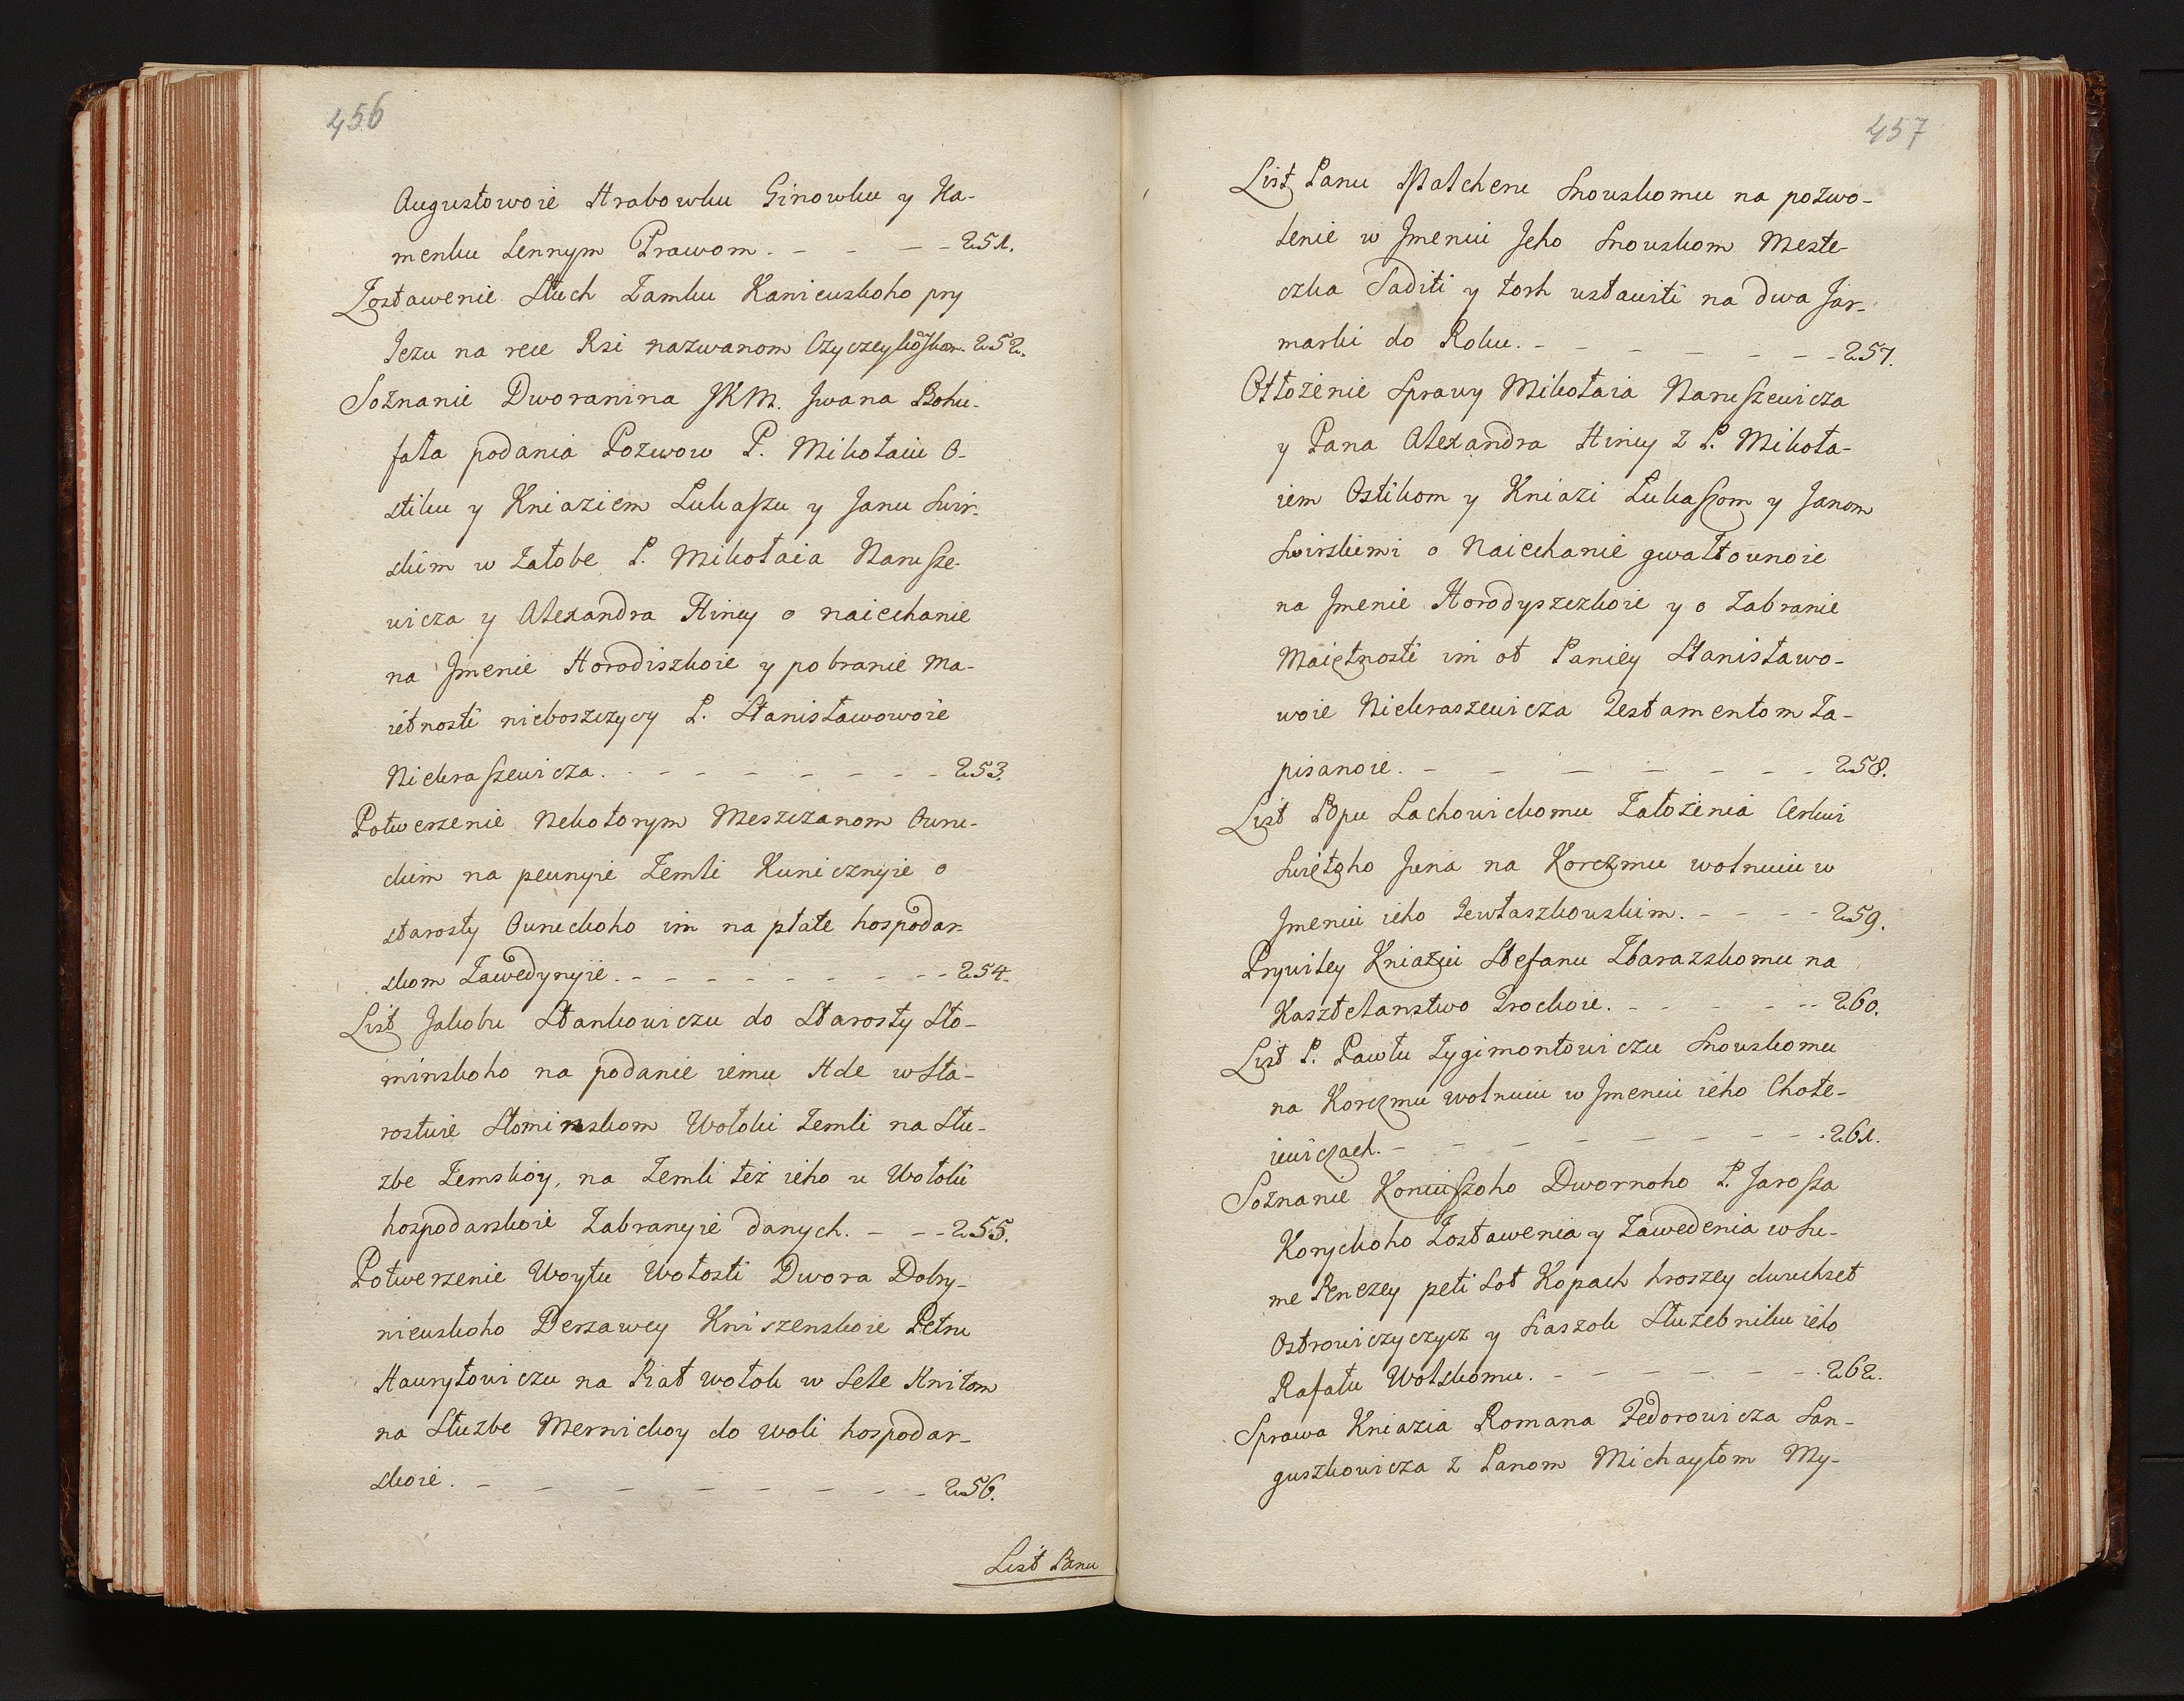 456
Augustowoie Hrabowku Ginowku y Ka-
menku Lennym Prawom. - - - - 251.
Zostawenie Sluch Zamku Kaniewskoho pry
Jezu na rece Rsi nazwanom 252.
Soznanie Dworanina JKM. Jwana Bohu-
fała podania Pozwow P. Mikołaiu O-
stiku y Kniaziem Lukaszu y Janu Swir-
skim w Załobe P. Mikołaia Narusze-
wicza y Alexandra Hincy o naiechanie
na Jmenie Horodiszkoie y pobranie ma-
iétnosti nieboszczycy P. Stanisławowoie
Niekraszewicza. - - - - - - - - 253.
Potwerzenie Nekotorym Meszczanom Owru-
ckim na pewnyie Zemli Kunicznyie o
starosty Owruckoho im na płate hospodar-
skom Zawedynyie. - - - - - - - - - 254.
List Jakobu Stankowiczu do Starosty Sło-
minskoho na podanie iemu Hde w Sta-
rostwie Słominskom Wołoki Zemli na Słu-
zbe Zemskoy, na Zemli też ieho u Wołoki
hospodarskoie Zabranyie danych. - - - 255.
Potwerzenie Woytu Wołosti Dwora Dobry-
niewskoho Derzawcy Kniszenskoie Petru
Hawryłowiczu na Piat wołok w Sele Knitom
na Służbe Mernickoy do woli hospodar-
skoie. - - - - - - - - 256.
List Panu
457
List Panu Malcheru Snowskomu na pozwo-
lenie w Jmeniu Jeho Snowskom Meste-
czka Saditi y torh ustawiti na dwa Jar-
marki do Roku. - - - - - - - 257.
Otłożenie Sprawy Mikołaia Naruszewicza
y Pana Alexandra Hincy z P. Mikoła-
iem Ostikom y Kniazi Lukaszom y Janom
Swirskiemi o Naiechanie gwałtownoie
na Jmenie Horodyszczkoie y o Zabranie
Maiętnosti im ot Paniey Stanisławo-
woie Niekraszewicza Testamentom Za-
pisanoie. - - - - - - - - 258.
List Popu Lachowickomu Założenia Cerkwi
Swiętoho Juria na Korczmu wolnuiu w
Jmeniu ieho Jewłaszkowskim. - - - - 259.
Prywiley Kniaziu Stefanu Zbarazskomu na
Kasztelanstwo Trockoie. - - - - - - 260.
List P. Pawłu Zygimontowiczu Snowskomu
na Korczmu wolnuiu w Jmeniu ieho Chote-
iewiczach. - - - - - - - - 261.
Soznanie Koniuszoho Dwornoho P. Jarosza
Koryckoho Zostawenia y Zawedenia w Su-
me Penezey peti Sot Kopach hroszey dwuchset
Ostrowiczyczycz y Saszok Służebniku ieho
Rafału Wolskomu. - - - - - - - 262.
Sprawa Kniazia Romana Fedorowicza San-
guszkowicza z Panom Michayłom My-